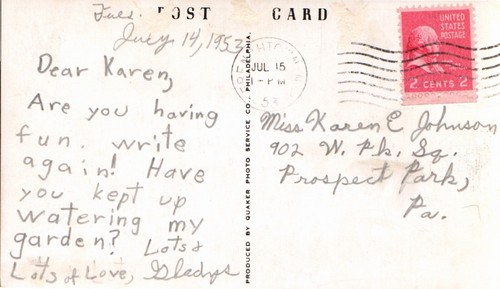 POST CARD
Tues.
July 14, 1953
Dear Karen,
Are you having
fun. write
again! Have
you kept up
watering my
garden? Lots &
Lots of Love, Gladys
PRODUCED BY QUAKER PHOTO SERVICE CO., PHILADELPHIA.
JUL 15
1-PM
53
UNITED
STATES
POSTAGE
2 CENTS 2
Miss Karen E Johnson
902 W. Pk. Sq.
Prospect Park,
Pa.